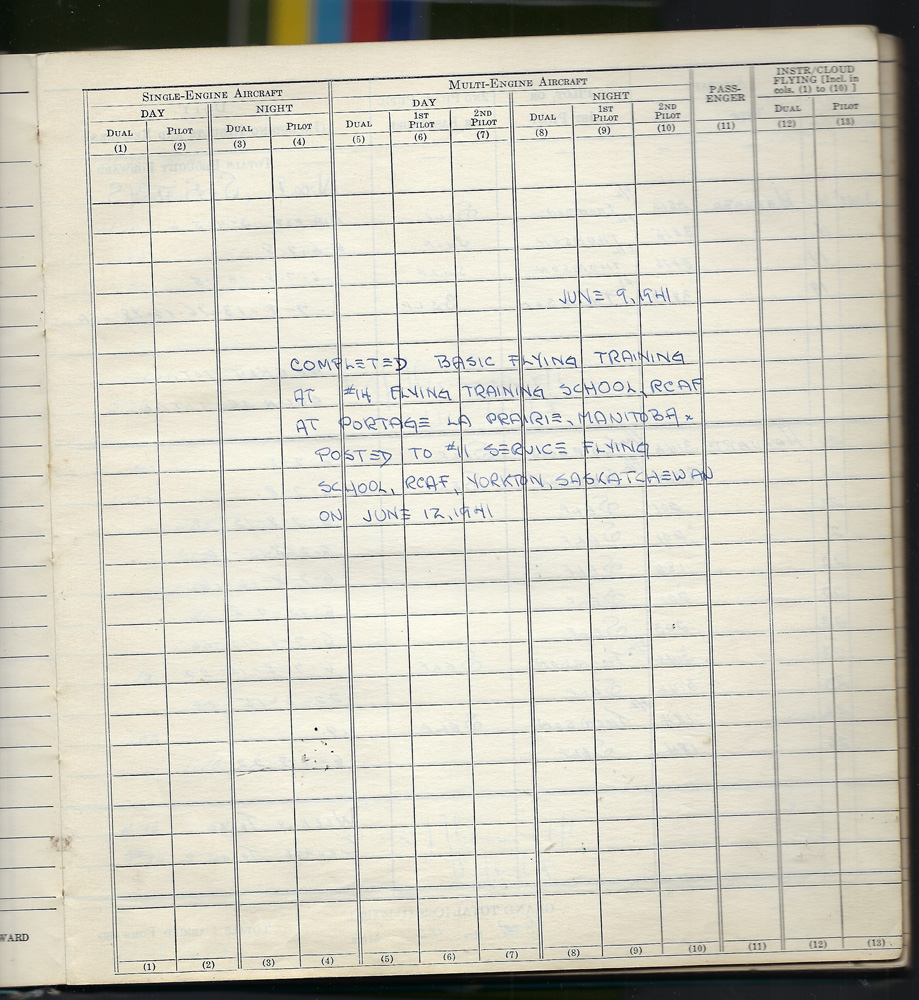 SINGLE-ENGINE AIRCRAFT MULTI-ENGINE AIRCRAFT PASS-ENGER INSTR/CLOUD FLYING [Incl. in cols. (1) to (10) ]
DAY NIGHT DAY NIGHT
DUAL PILOT DUAL PILOT DUAL 1ST PILOT 2ND PILOT DUAL 1ST PILOT 2ND PILOT DUAL PILOT
(1) (2) (3) (4) (5) (6) (7) (8) (9) (10) (11) (12) (13)
JUNE 9, 1941
COMPLETED BASIC FLYING TRAINING
AT #14 FLYING TRAINING SCHOOL, RCAF
AT PORTAGE LA PRAIRIE, MANITOBA.
POSTED TO #11 SERVICE FLYING
SCHOOL, RCAF, YORKTON, SASKATCHEWAN
ON JUNE 12, 1941
WARD
(1) (2) (3) (4) (5) (6) (7) (8) (9) (10) (11) (12) (13)